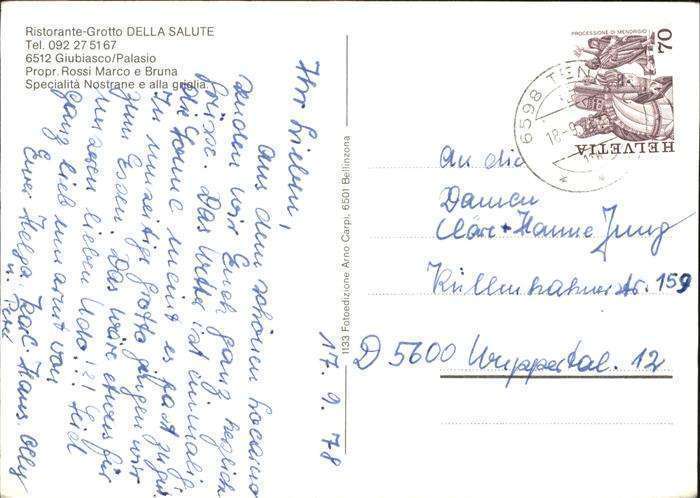 Ristorante-Grotto DELLA SALUTE
Tel. 092 27 51 67
6512 Giubiasco/Palasio
Propr. Rossi Marco e Bruna
Specialità Nostrane e alla griglia
Ihr Lieben!
Aus dem schönen Locarno
senden wir Euch ganz herzlich
Grüsse. Das Wetter ist einmalig
die Sonne meint es fast zu gut
In unserer Grotto gingen wir
zum Essen. Das wäre etwas für
unseren lieben Udo!!! Seid
ganz lieb umarmt von
Euer Helga, Karl, Hans, Olly
u. Peter
17. 9. 78
1133 Fotoedizione Arno Carpi, 6501 Bellinzona
PROCESSIONE DI MENDRISIO
70
HELVETIA
6598 TEN
18-9
An die
Damen
Cläre + Hanne Jung
Küllenhahnerstr. 159
D 5600 Wuppertal. 12